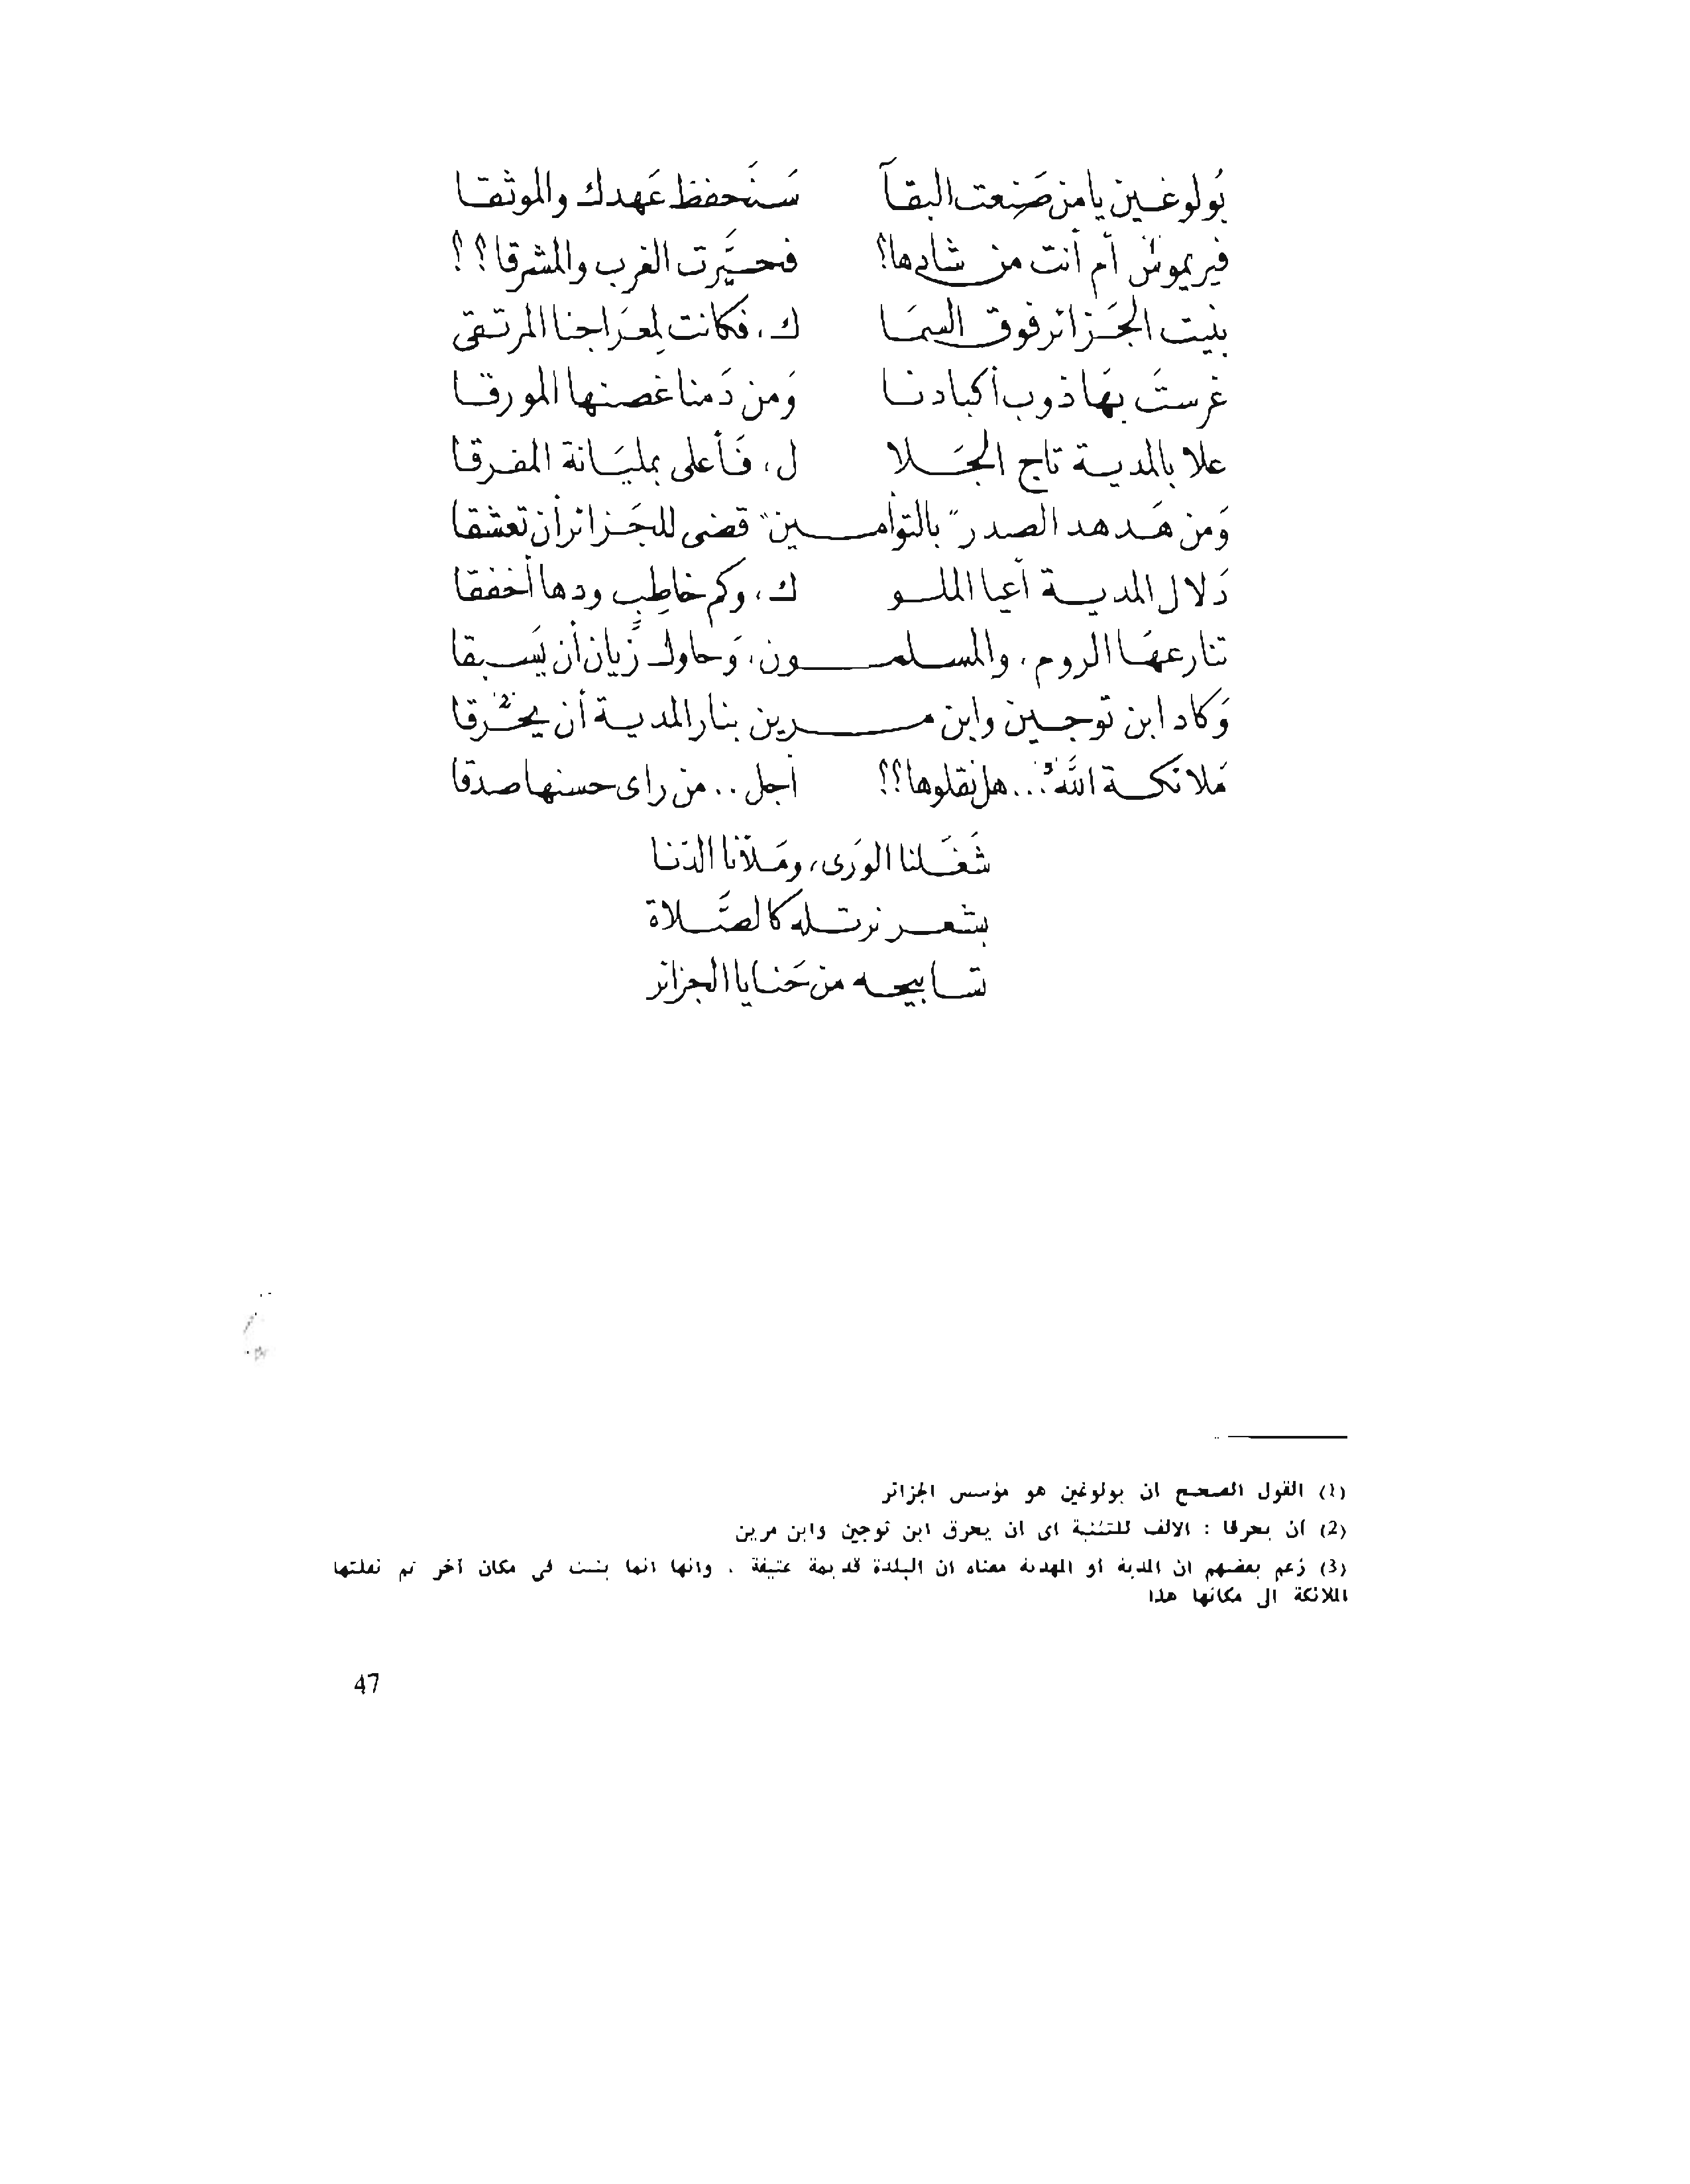 بُولوغين يا من صَنِعت البقآ سَنَحفظ عَهدك والموثقا
فيريموش (1) أم أنت من شادها؟ فحيَّرت الغرب والمشرقا؟؟
بنيت الجَزائر فوق السمَا ك، فكانت لِمعَراجنا المرتقى
غرستَ بهَا ذوب أكبادنا وَمن دَمنا غصنها المورقا
علا بالمدية تاج الجَلا ل، فَأعلى بمليَانة المفرقا
وَمن هَدهد الصدر "بالتوأمين" قضى للجَزائر أن تعشقا
دَلال المدية أعيا الملو ك، وكم خاطِبٍ ودها أخفقا
تنازعهَا الروم، والمسلمون، وَحاول زيان أن يَسبقا
وَكاد ابن توجين وابن مرين بنار المدية أن يحرقا (2)
مَلائكة اللَّه (3)... هل نقلوها؟؟ أجل.. من رأى حسنها صدقا
شَغَلنا الورَى، ومَلأنا الدّنا
بشعر نرتله كالصَّلاة
تسابيحه من حَنايا الجزائر
(1) القول الصحيح ان بولوغين هو مؤسس الجزائر
(2) أن يحرقا : الالف للتثنية اى ان يحرق ابن توجين وابن مرين
(3) زعم بعضهم ان المدية أو المهدية معناه ان البلدة قديمة عتيقة . وانها انما بنيت فى مكان آخر ثم نقلتها
الملائكة الى مكانها هذا
47